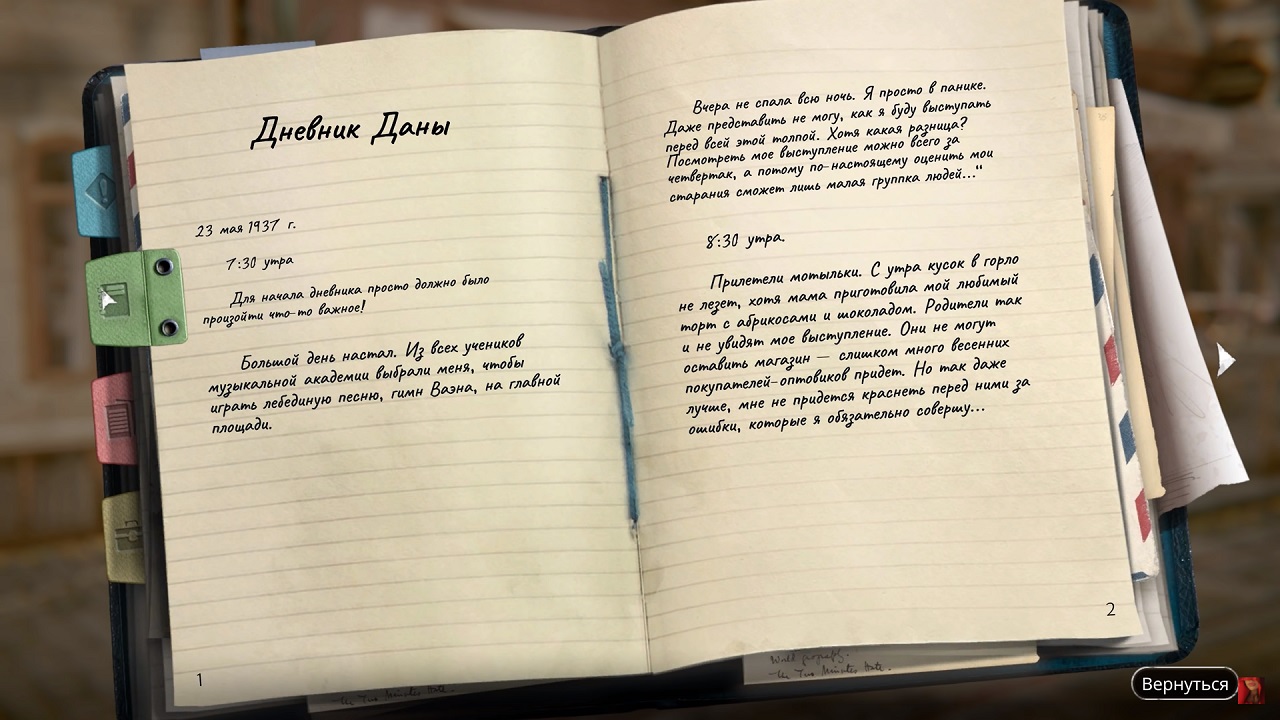 Дневник Даны
23 мая 1937 г.
7:30 утра
Для начала дневника просто должно было
произойти что-то важное!
Большой день настал. Из всех учеников
музыкальной академии выбрали меня, чтобы
играть лебединую песню, гимн Ваэна, на главной
площади.
1
Вчера не спала всю ночь. Я просто в панике.
Даже представить не могу, как я буду выступать
перед всей этой толпой. Хотя какая разница?
Посмотреть мое выступление можно всего за
четвертак, а потому по-настоящему оценить мои
старания сможет лишь малая группка людей..."
8:30 утра.
Прилетели мотыльки. С утра кусок в горло
не лезет, хотя мама приготовила мой любимый
торт с абрикосами и шоколадом. Родители так
и не увидят мое выступление. Они не могут
оставить магазин — слишком много весенних
покупателей-оптовиков придет. Но так даже
лучше, мне не придется краснеть перед ними за
ошибки, которые я обязательно совершу...
2
Two Minutes Hate.
Two Minutes Hate.
Вернуться